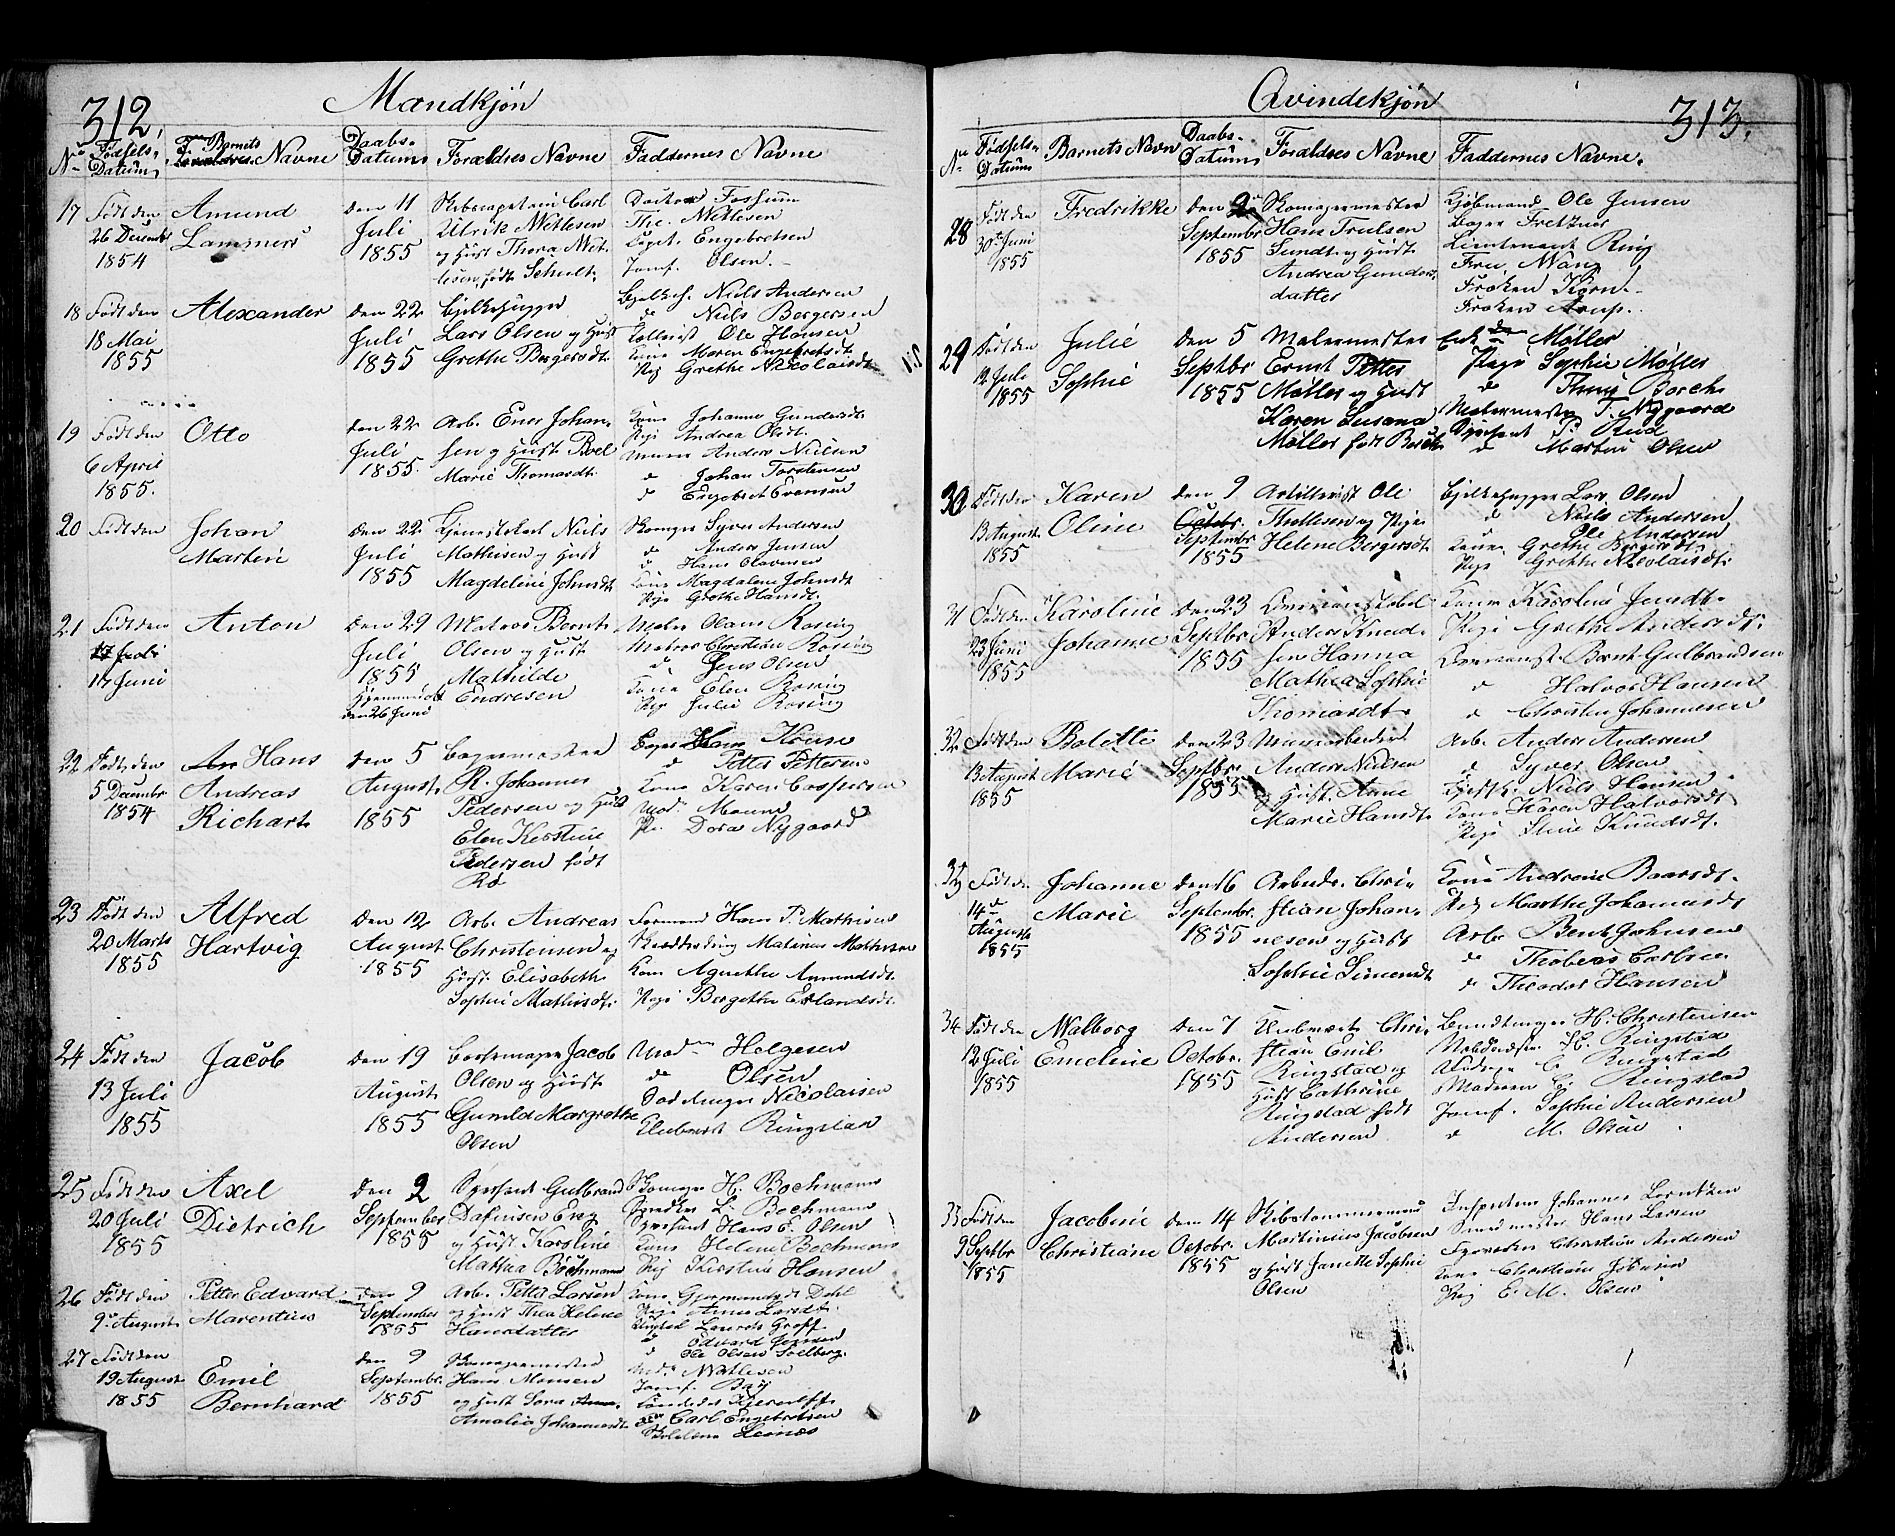 312.
Mandkjøn
No
Fødsels-
Datum
Barnets Navne
Daabs-
Datum
Forældres Navne
Faddernes Navne
17
Født den
26 Decembr
1854
Amund
Lammers
den 11
Juli
1855
Skibscapitain Carl
Ulrik Wetlesen
og Hust Thora Wet-
lesen, født Schult
Doctor Fossum
Wetlesen
Capt. Engebretsen
Jomf. Olsen.
18
Født den
18 Mai
1855
Alexander
den 22
Juli
1855
Bjelkehugger
Lars Olsen og Hust
Grethe Bergersdt.
Bjelkeh. Niels Andersen
do Niels Bergersen
Ole Hansen
Kone Maren Engebretsdt
Pig Grethe Nikolaisdt
19
Født den
6 April
1855.
Otto
den 22
Juli
1855.
Arb. Ener Johan-
sen og Hust Boel
Marie Thomasdt.
Kone Johanne Gundersdt
Pige Andrea Olsdt.
Anders Nielsen
do Johan Torstensen
do Engebret Evensen
20
Født den
Johan
Martin
den 22
Juli
1855
Niels
Mathisen og Hust
Magdeline Johnsdt
Skomgr Syver Andersen
do Anders Jensen
do Hans Olavesen
Kone Magdalene Johnsdt
Pige Grethe Hansdt.
21
Født den
17 Juli
17 Juni
Anton
den 29
Juli
1855
Hjemmedøbt
den 26 Juni
Matros Bernt
Olsen og Hust
Mathilde
Endresen
Maler Olaus Rosing
Matros Christian Rosing
do Jens Olsen
Kone Elen Rosing
Pige Julie Rosing
22
Født den
5 Decembr
1854
Hans
Andreas
Richart
den 5
August
1855
Bagermester
R. Johannes
Pedersen og Hust
Elen Kirstine
Pedersen født
Rø
Bager Hans Kruse
do Petter Pettersen
Kone Karen Caspersen
Mad.
Pi. Dora Nygaard
23
Født den
20 Marts
1855
Alfred
Hartvig
den 12
August
1855
Arb. Andreas
Christensen og
Hust Elisabeth
Sophie Mathisdt.
Formand Hans P. Mathisen
Skrædderdreng Matinius Mathisen
Kone Agnethe Amundsdt
Pige Bergethe Erlandsdt.
24
Født den
13 Juli
1855
Jacob
den 19
August
1855
Jacob
Olsen og Hust
Gunild Margrethe
Olsen
Mad. Helgesen
do Olsen
Nicolaisen
Klubvært Ringstad
25
Født den
20 Juli
1855
Axel
Dietrich
den 2
September
1855
Gulbrand
og Hust Karoline
Mathea Bochmann
Skomager H. Bochmann
L. Bochmann
Hans E. Olsen
Kone Helene Bochmann
Pig Kirstine Hansen
26
Født den
9de August
Petter Edvard
Marentius
den 9
September
1855
Arb. Petter Larsen
og Hust Thea Helene
Hansdatter
Kone Dahl
Pige Anne Larsdt.
Laurits Groff
do Edvard Jensen
do Ole Olsen Solberg.
27
Født den
19 August
1855
Emil
Bernhard
den 9
Septembr.
1855
Skomagermester
Hans Monsen
og Hust
Amalia Johannesdt.
Mad. Wetlesen
Jomf. Bay
Carl Engebretsen
313.
Qvindekjøn
No
Fødsels-
Datum
Barnets Navn
Daabs-
Datum
Forældres Navne
Faddernes Navne.
28
Født den
30te Juni
1855
Fredrikke
den 2
Septembr
1855
Skomagermester
Hans Trulsen
Sundt og Hust
Andrea Gunders-
datter
Kjøbmand Ole Jensen
Bager Fretzner
Lieutenant Ring
Fru Wang
Frøken
Frøken Arup.
29
Født den
12 Juli
1855
Julie
Sophie
den 5
Septbr
1855
Malermester
Ernst Petter
Møller og Hust
Karen Susana
Møller født Borch
Enk Møller
Pige Sophie Møller
do Borch
Malermester T. Nygaard
do Martin Olsen
30
Født den
13 August
1855
Karen
Oline
den 9
Octobr.
Septembr
1855
Artillerist Ole
Thollesen og Pige
Helene Bergersdt.
Bjelkehugger Lars Olsen
do Niels Andersen
Ole Andersen
Kone Grethe Bergersdt
Pige Grethe Nicolaisdt.
31
Født den
23 Juni
1855
Karoline
Johanne
den 23
Septbr
1855
Anders Knud-
sen Hanna
Mathea Sophie
Thomasdt.
Kone Karoline
Pige Grethe Andersdt.
Bernt Gulbrandsen
do Halvor Hansen
do Christen Johannesen
32
Født den
13 August
1855
Bolette
Marie
den 23
Septbr
1855
Muurarbeider
Anders Nielsen
og Hust. Anne
Marie Hansdt.
Arb. Anders Andersen
do Syver Olsen
Niels Hansen
Kone Karen Halvorsdt
Pige Stine Knudsdt.
33
Født d.
14de
August
1855
Johanne
Marie
den 16
Septembr.
1855
Arbeidr. Chri-
stian Johan-
nesen og Hust
Sophie Simensdt
Kone Andrine Baarsdt.
Pig Marthe Johannesdt
Arb. Bent Johnsen
do Thobias Carlsen
do Theodor Hansen
34
Født den
12 Juli
1855
Walborg
Emeline
den 7
Octobr.
1855
Klubvært Chri-
stian Emil
Ringstad og
Hust Cathrine
Ringstad født
Andersen
H. Christensen
Ringstad
C. Ringstad
Madam E. Ringstad
Jomf. Sophie Andersen
do M. Olsen
35
Født den
9 Septbr
1855
Jacobine
Christiane
den 14
Octobr.
1855
Skibstømmermand
Martinius Jacobsen
og Hust Janette Sophie
Olsen
Johannes Lorntzen
Smedmester Hans Larsen
Christian Andersen
Kone Christiane
Pig E. M. Olsen